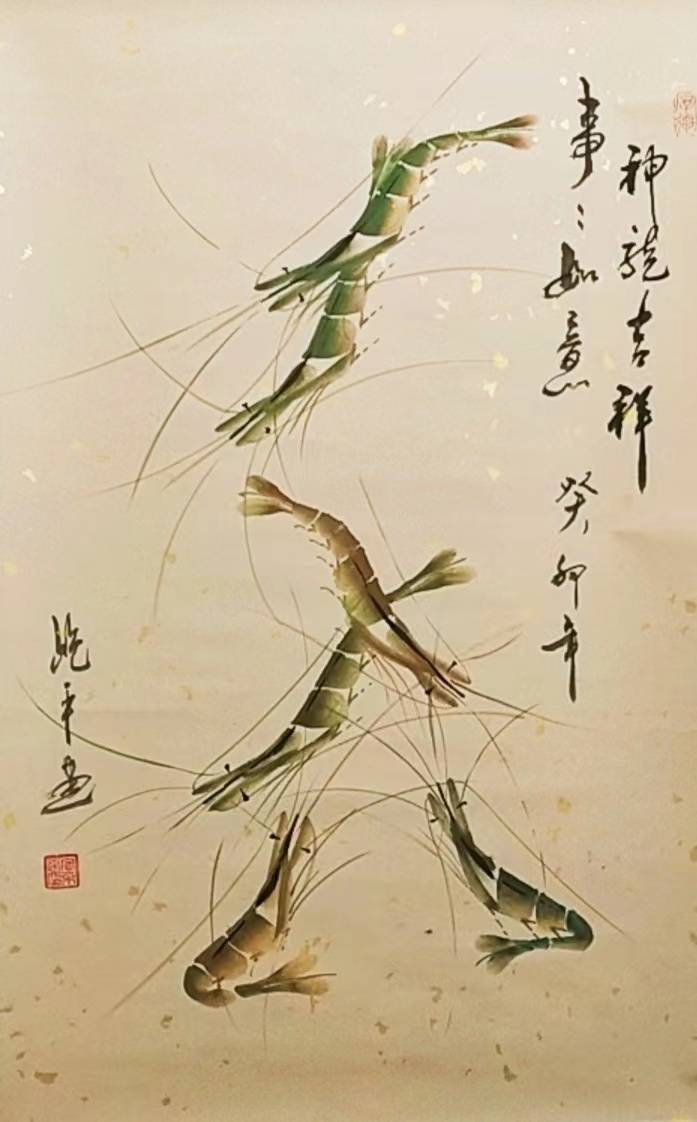 神龍吉祥
事〻如意 癸卯年
晓平画